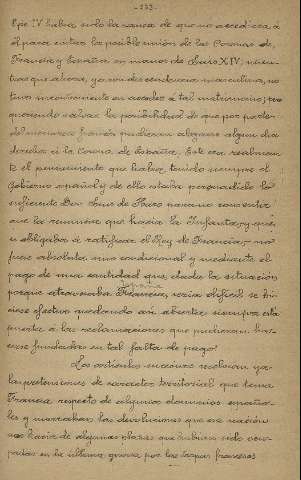 -153-
lipe IV había sido la causa de que no accediera á
él para evitar la posible unión de las Coronas de
Francia y España en manos de Luis XIV; mien-
tras que ahora, ya con descendencia masculina, no
tuvo inconveniente en acceder a tal matrimonio; pero
queriendo salvar la posibilidad de que por parte
del monarca francés pudieran alegarse algun dia
derechos á la Corona de España. Este era realmen-
te el pensamiento que había tenido siempre el
Gobierno español y de ello estaba persuadido lo
suficiente Don Luis de Haro para no consentir
que la renuncia que hacía la Infanta, y que
se obligaba á ratificar el Rey de Francia, no
fuese absoluta, sino condicional y mediante el
pago de una cantidad que, dada la situación
porque atravesaba España, sería dificil se hi-
ciese efectiva quedando así abierta siempre una
puerta á las reclamaciones que pudieran hac-
erse fundadas en tal falta de pago.
Los artículos sucesivos resolvían ya
las pretensiones de caracter territorial que tenía
Francia respecto de algunos dominios españo-
les y marcaban las devoluciones que esa nación
nos hacía de algunas plazas que habían sido ocu-
padas en la última guerra por las tropas francesas